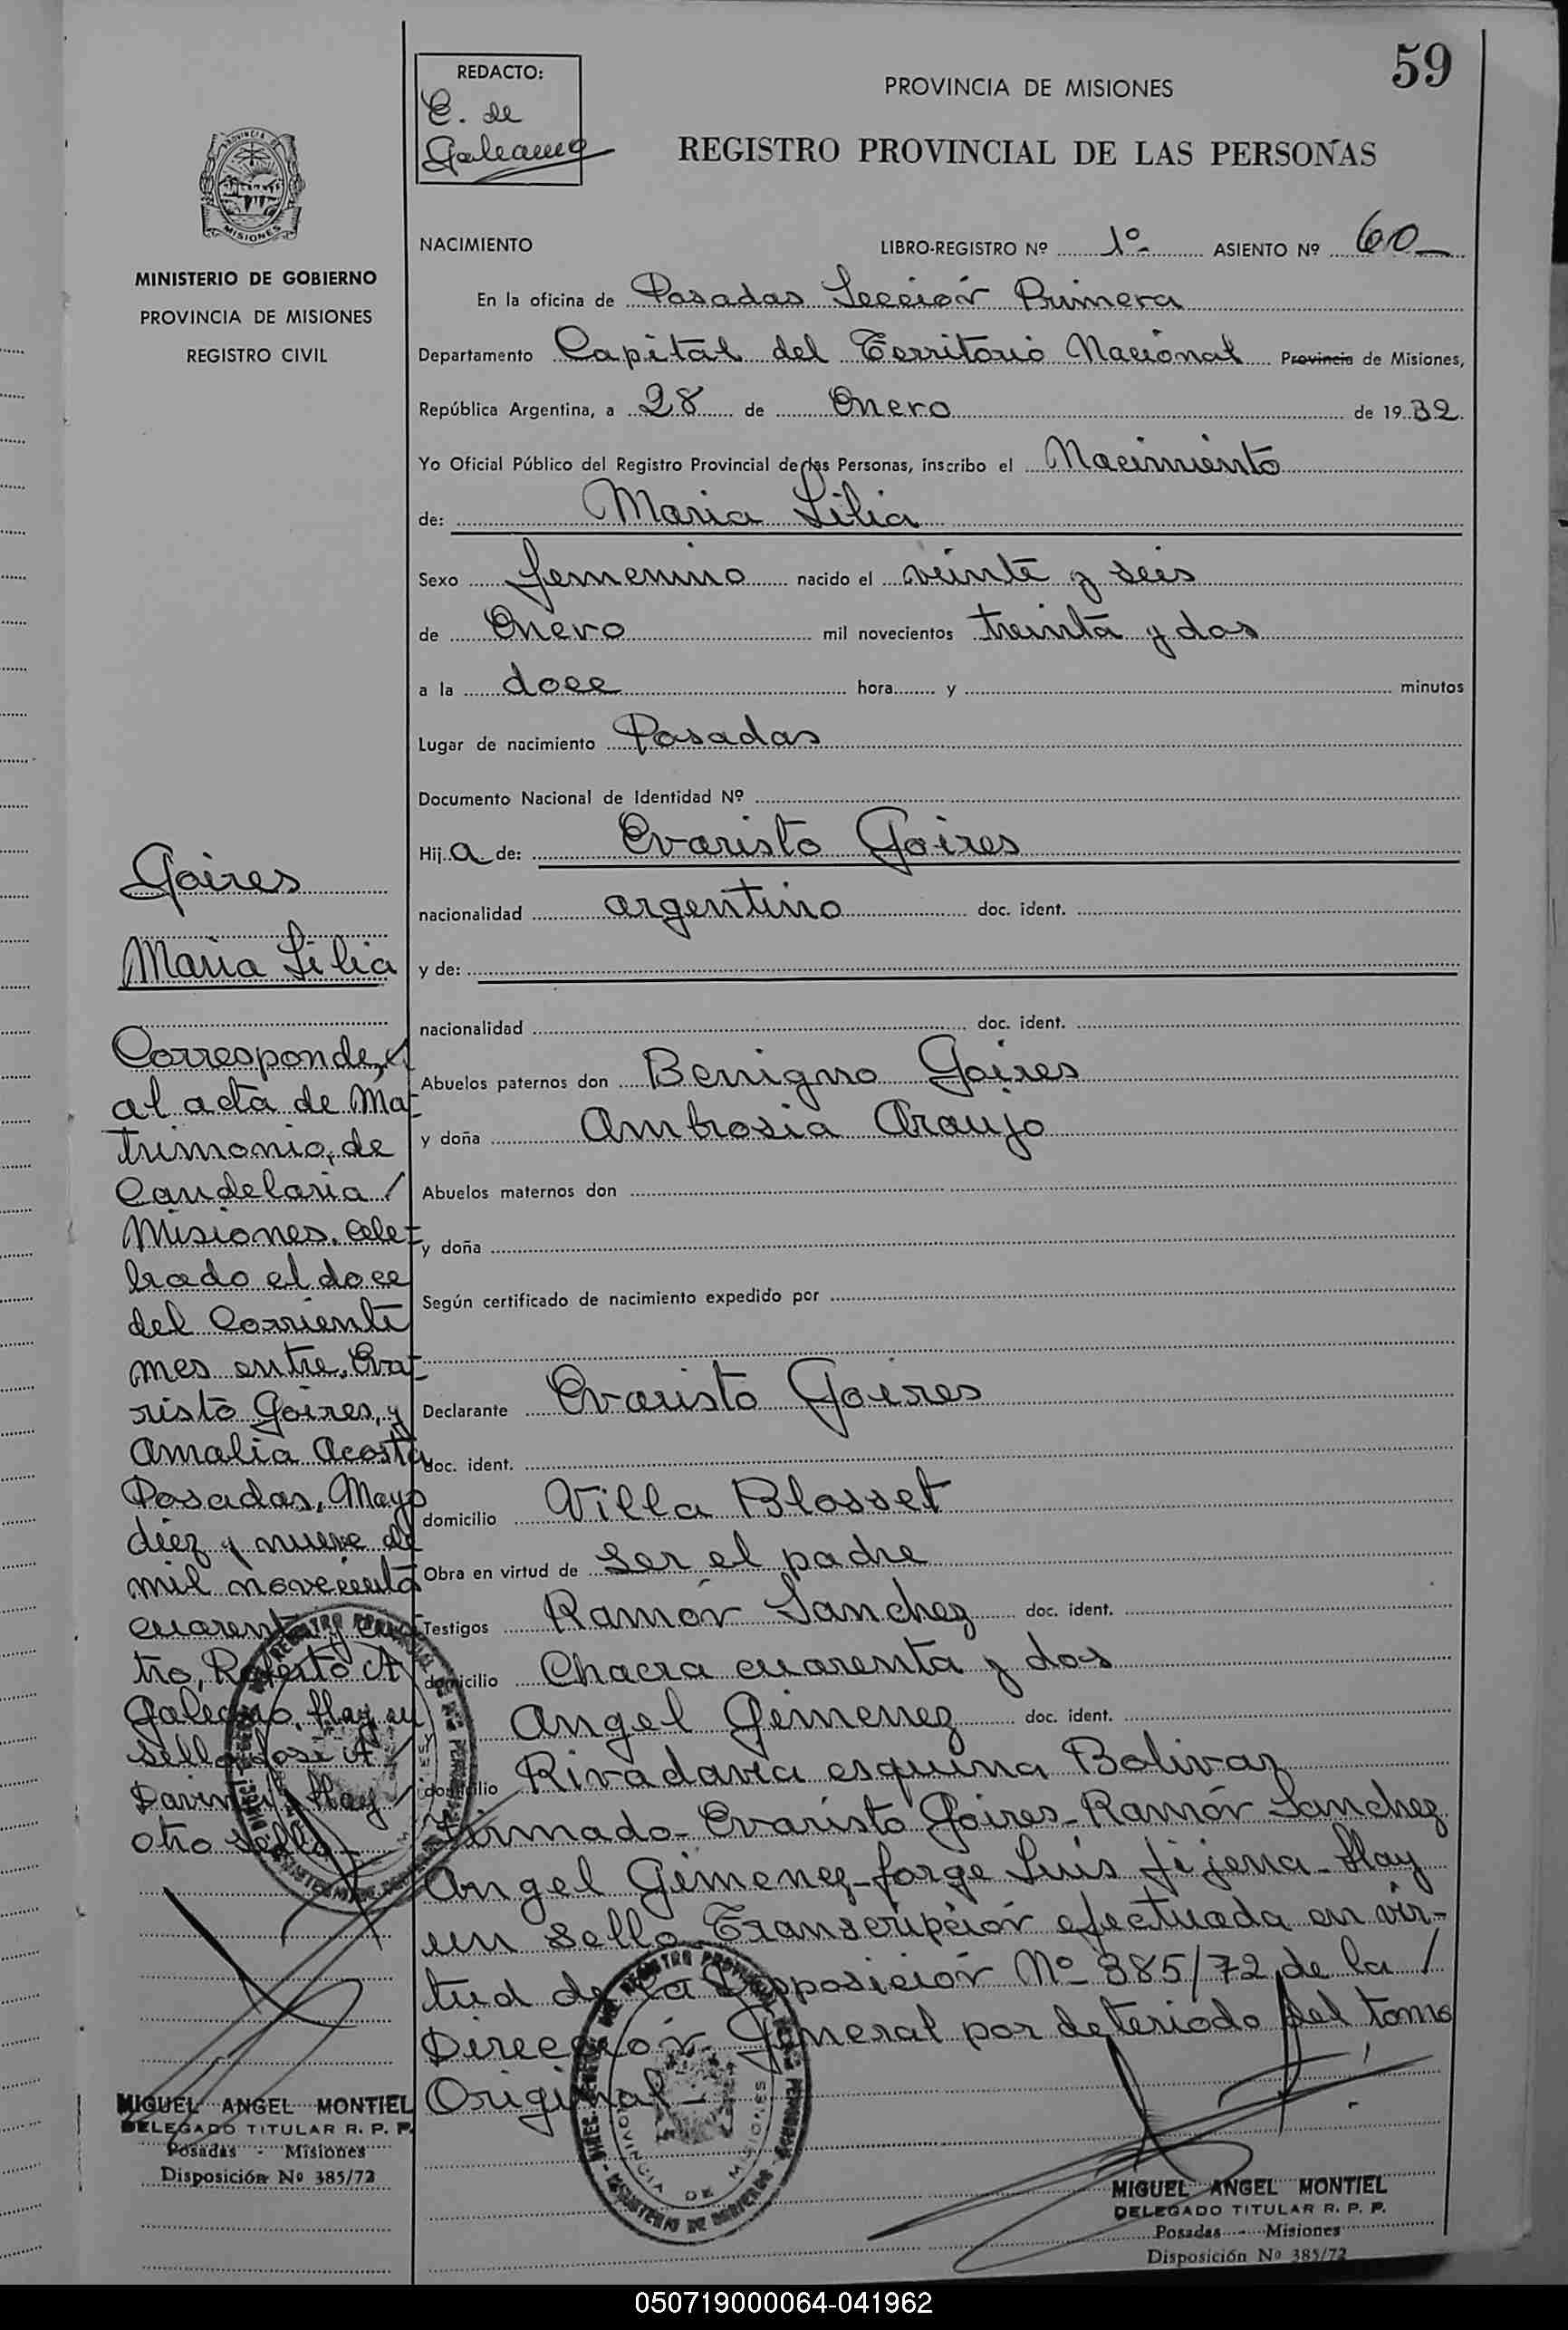 59
REDACTO:
E. de
Galeano
PROVINCIA DE MISIONES
REGISTRO PROVINCIAL DE LAS PERSONAS
MISIONES
MINISTERIO DE GOBIERNO
PROVINCIA DE MISIONES
REGISTRO CIVIL
NACIMIENTO LIBRO-REGISTRO Nº 1º- ASIENTO Nº 60-
En la oficina de Posadas Sección Primera
Departamento Capital del Territorio Nacional Provincia de Misiones,
República Argentina, a 28 de Enero de 1932.
Yo Oficial Público del Registro Provincial de las Personas, inscribo el Nacimiento
de: Maria Lilia
Sexo femenino nacido el veinte y seis
de Enero mil novecientos treinta y dos
a la doce hora y minutos
Lugar de nacimiento Posadas
Documento Nacional de Identidad Nº
Hija de: Evaristo Goires
nacionalidad argentino doc. ident.
y de:
nacionalidad doc. ident.
Abuelos paternos don Benigno Goires
y doña Ambrosia Araujo
Abuelos maternos don
y doña
Según certificado de nacimiento expedido por
Declarante Evaristo Goires
doc. ident.
domicilio Villa Blosset
Obra en virtud de ser el padre
Testigos Ramón Sanchez doc. ident.
domicilio Chacra cuarenta y dos
y Angel Gimenez doc. ident.
domicilio Rivadavia esquina Bolivar
Firmado- Evaristo Goires- Ramón Sanchez
Angel Gimenez- Jorge Luis Jijena- Hay
un sello. Transcripción efectuada en vir-
tud de la Disposición Nº 385/72 de la /
Dirección General por deteriodo del tomo
Original-
Goires
Maria Lilia
Corresponde,
al acta de Ma-
trimonio, de
Candelaria /
Misiones. Cele-
brado el doce
del Corriente
mes entre, Eva-
risto Goires, y
Amalia Acosta
Posadas, Mayo
diez y nueve de
mil novecientos
cuarenta y cua-
tro, Roberto A
Galeano. Hay un
sello José A /
Hay /
otro sello-
MIGUEL ANGEL MONTIEL
DELEGADO TITULAR R. P. P.
Posadas - Misiones
Disposición Nº 385/72
PROVINCIA DE MISIONES
MINISTERIO DE GOBIERNO
MIGUEL ANGEL MONTIEL
DELEGADO TITULAR R. P. P.
Posadas - Misiones
Disposición Nº 385/72
050719000064-041962